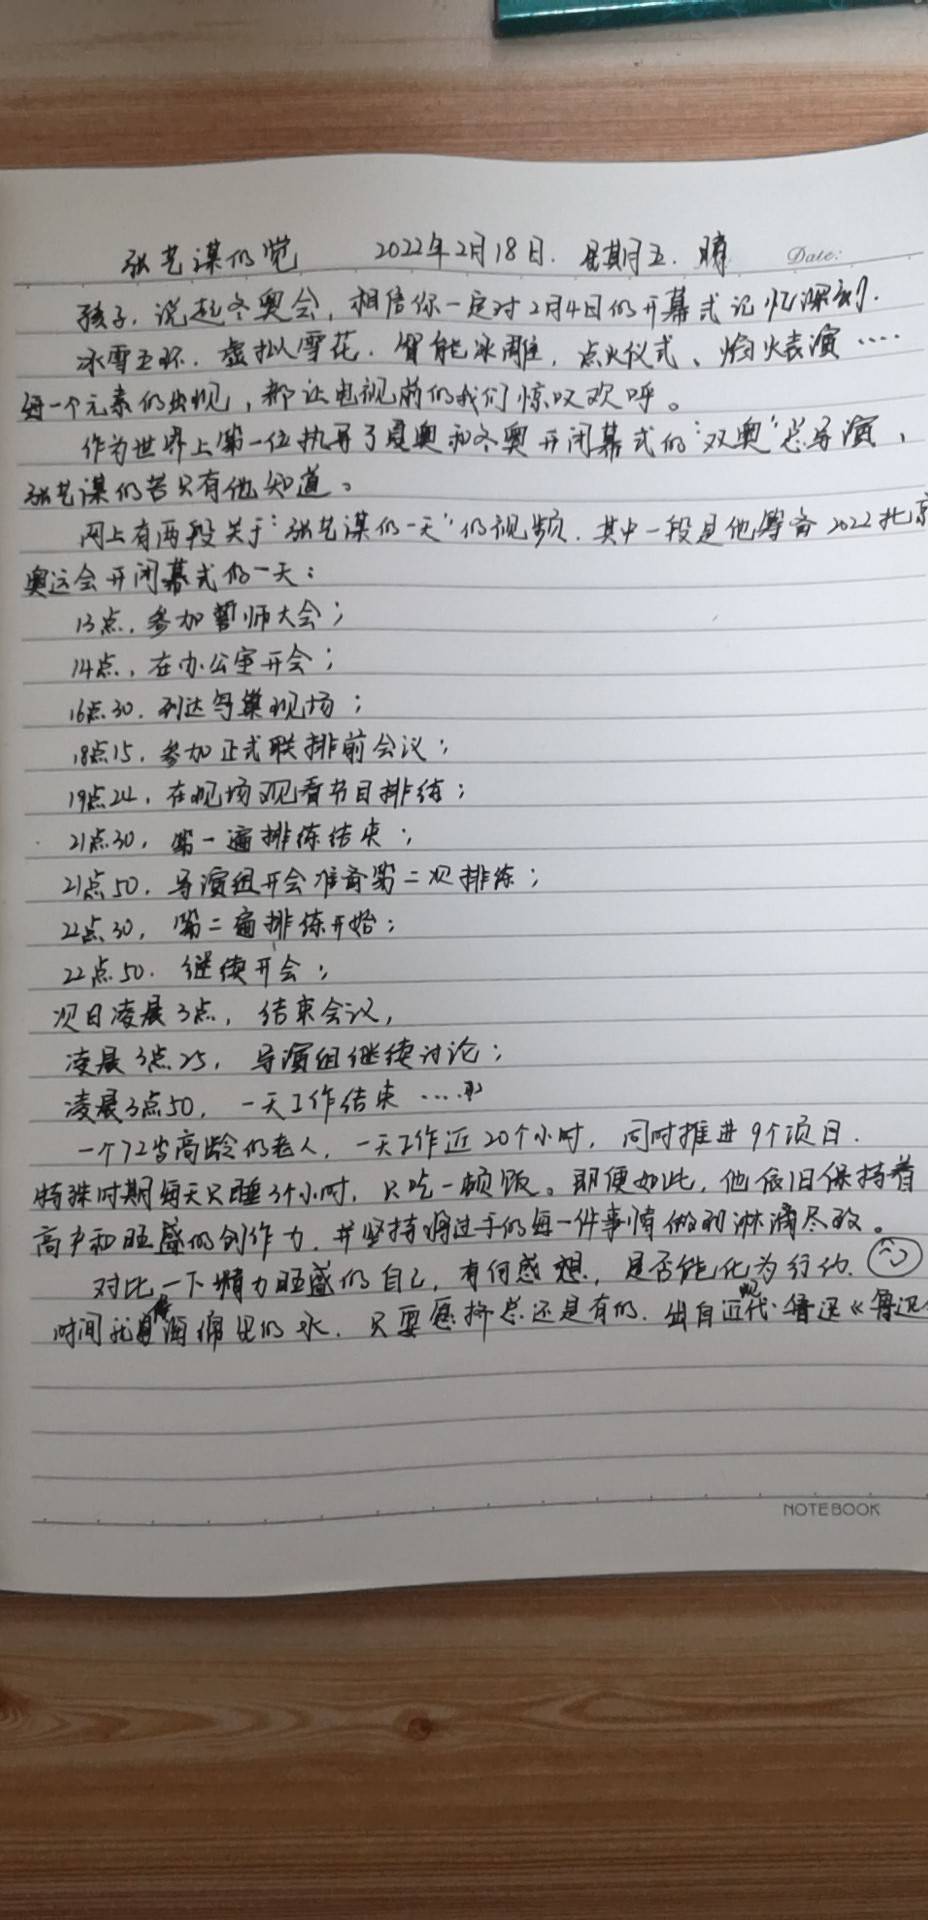 张艺谋的觉 2022年2月18日. 星期五. 晴 Date:
孩子, 说起冬奥会, 相信你一定对2月4日的开幕式记忆深刻.
冰雪五环. 虚拟雪花. 智能冰雕, 点火仪式、焰火表演 ····
每一个元素的出现, 都让电视前的我们惊叹欢呼。
作为世界上第一位执导了夏奥和冬奥开闭幕式的“双奥”总导演,
张艺谋的苦只有他知道。
网上有两段关于“张艺谋的一天”的视频. 其中一段是他筹备2022北京
奥运会开闭幕式的一天:
13点, 参加誓师大会;
14点, 在办公室开会;
16点30. 到达鸟巢现场;
18点15, 参加正式联排前会议;
19点24, 在现场观看节目排练;
21点30, 第一遍排练结束;
21点50. 导演组开会准备第二次排练;
22点30, 第二遍排练开始;
22点50. 继续开会;
次日凌晨3点, 结束会议,
凌晨3点25, 导演组继续讨论;
凌晨3点50, 一天工作结束 ····
一个72岁高龄的老人, 一天工作近20个小时, 同时推进9个项目.
特殊时期每天只睡3个小时, 只吃一顿饭。即便如此, 他依旧保持着
高产和旺盛的创作力, 并坚持将过手的每一件事情做到淋漓尽致。
对比一下精力旺盛的自己, 有何感想, 是否能化为行动.
时间就像海绵里的水. 只要愿挤总还是有的. 出自近现代·鲁迅《鲁迅
NOTEBOOK